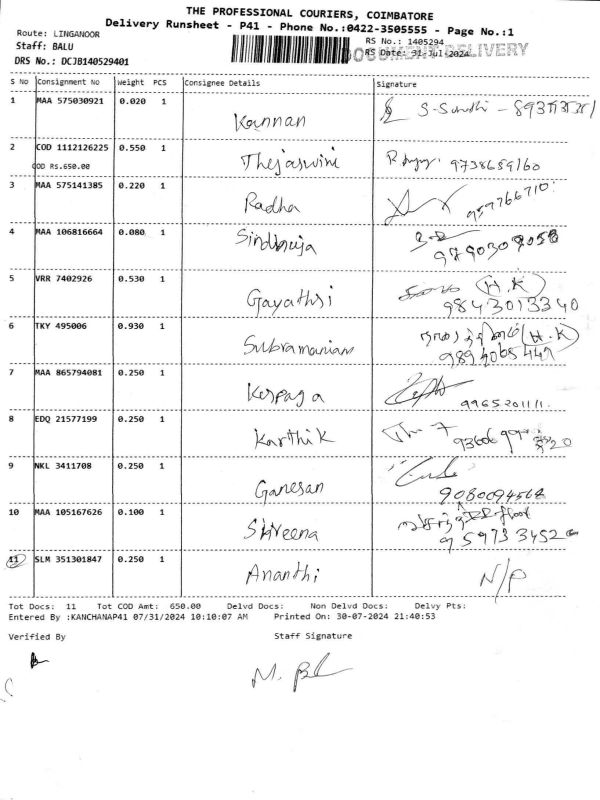 THE PROFESSIONAL COURIERS, COIMBATORE
Delivery Runsheet - P41 - Phone No.:0422-3505555 - Page No.:1
Route: LINGANOOR
RS No.: 1405294
Staff: BALU
DOCUMENT DELIVERY
RS Date: 31-Jul-2024
DRS No.: DCJB140529401
S No Consignment No Weight PCS Consignee Details Signature
1 MAA 575030921 0.020 1 Kannan
2 COD 1112126225 0.550 1 Thejaswini 9738659160
COD RS.650.00
3 MAA 575141385 0.220 1 Radha
4 MAA 106816664 0.080 1 Sindhuja
5 VRR 7402926 0.530 1 Gayathri (H.K)
9843013340
6 TKY 495006 0.930 1 Subramanian (H.K)
9894065449
7 MAA 865794081 0.250 1 Karpaga
9965201111.
8 EDQ 21577199 0.250 1 Karthik
9 NKL 3411708 0.250 1 Ganesan
9080094568
10 MAA 105167626 0.100 1 Shreena
11 SLM 351301847 0.250 1 Ananthi N/P
Tot Docs: 11 Tot COD Amt: 650.00 Delvd Docs: Non Delvd Docs: Delvy Pts:
Entered By :KANCHANAP41 07/31/2024 10:10:07 AM Printed On: 30-07-2024 21:40:53
Verified By Staff Signature